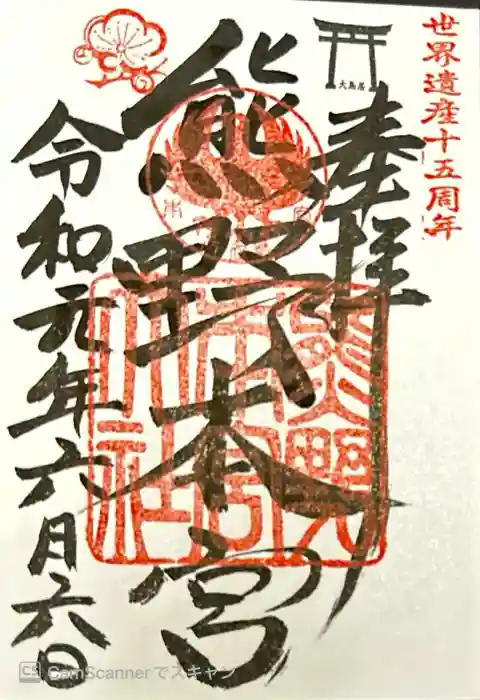 世界遺産十五周年
大鳥居
奉拝
熊野本宮
熊野本宮大社
令和元年六月六日
CS CamScannerでスキャン